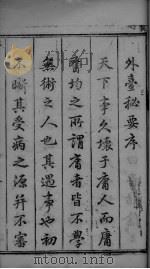 外臺秘要序
天下事久壞于庸人而庸
醫均之所謂庸者皆不學
無術之人也其遇事也初
不晰其受病之源并不審
mtoou.info